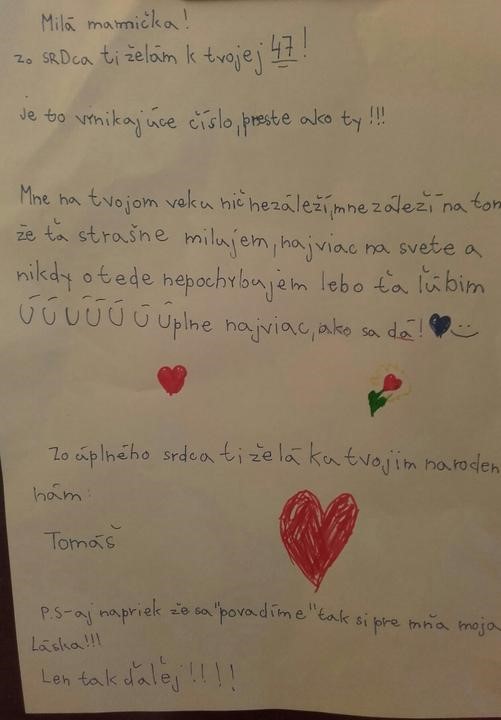 Milá mamička!
zo SRDca ti želám k tvojej 47!
je to vinikajúce číslo, preste ako ty!!!
Mne na tvojom veku nič nezáleží, mne záleží na tom
že ťa strašne milujem, najviac na svete a
nikdy o tede nepochybujem lebo ťa ľúbim
Ú Ú Ú Ú Ú Ú Úplne najviac, ako sa dá!
Zo úplného srdca ti želá ku tvojim naroden
nám:
Tomáš
P.S-aj napriek že sa "povadíme" tak si pre mňa moja
Láska!!!
Len tak ďalej!!!!